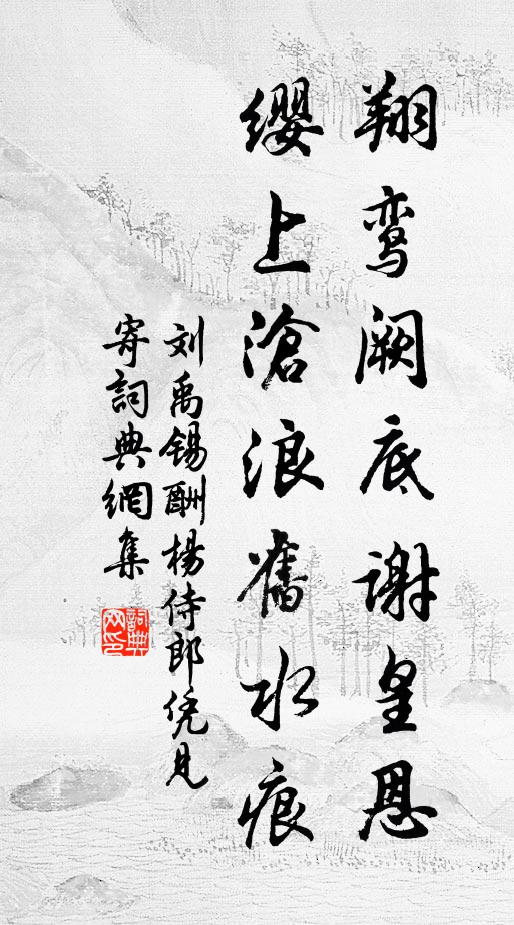 翔鸾阙底谢皇恩
缨上滄浪舊水痕
刘禹锡酬楊侍郎凭見
寄詞典網集
詞典
网印